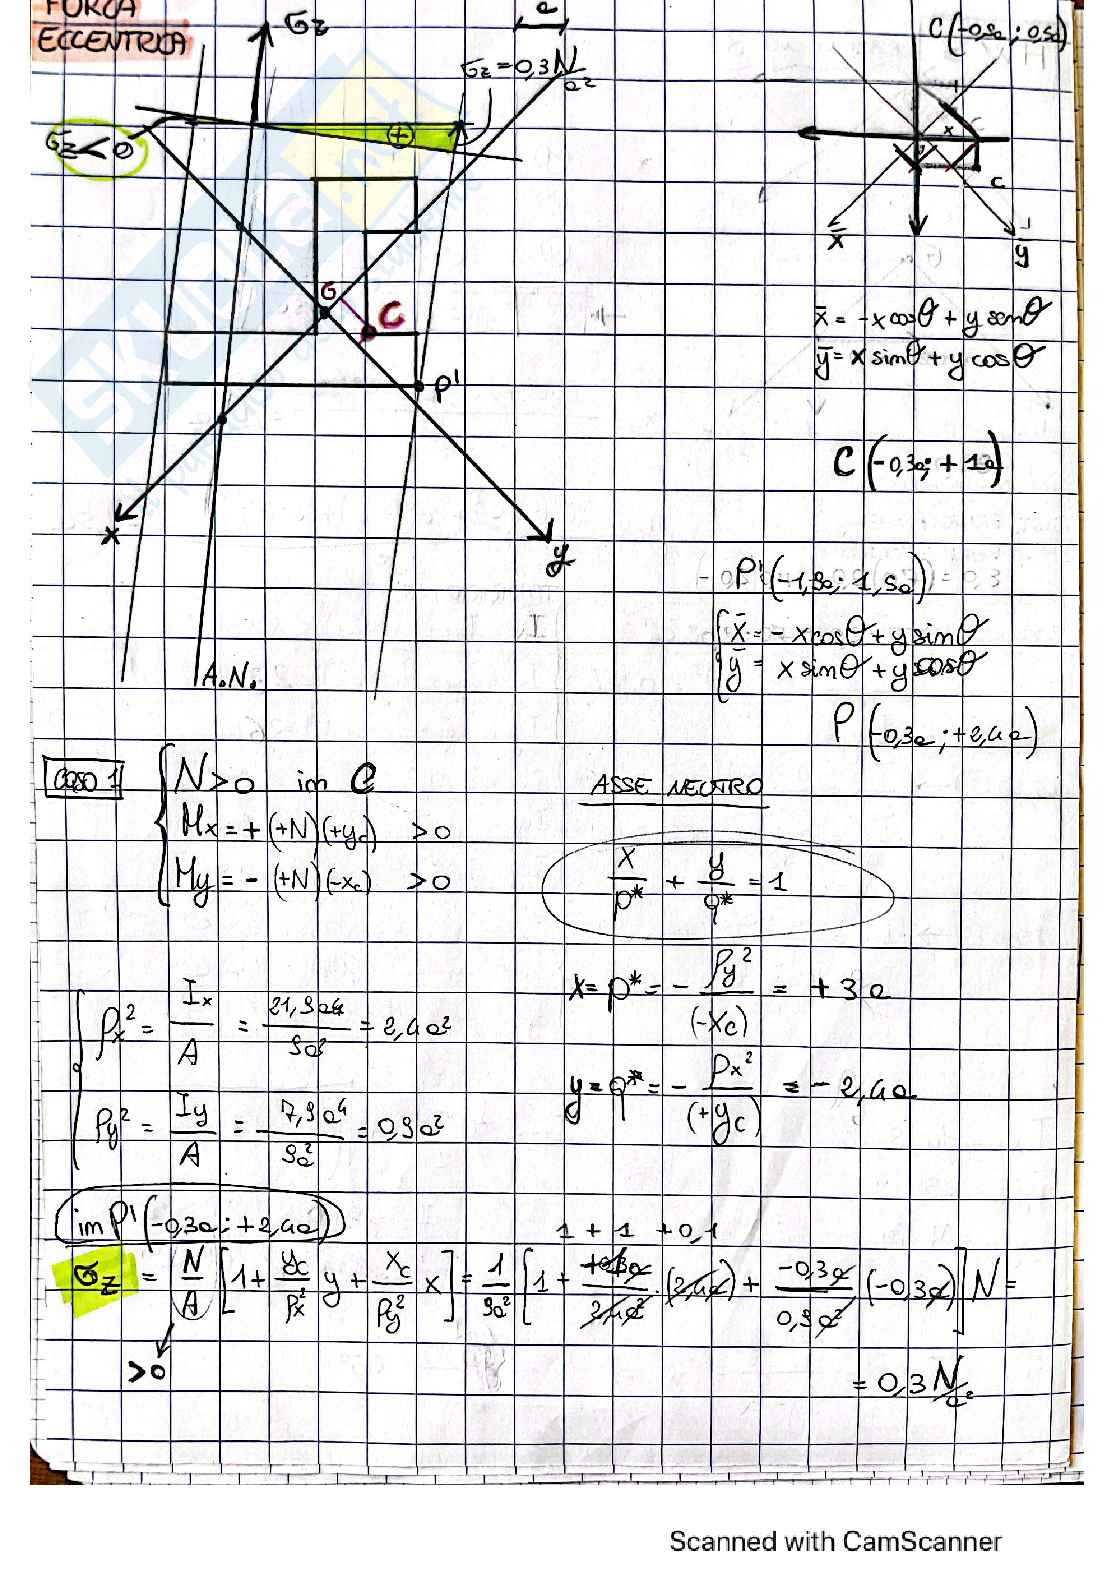 FORZA
ECCENTRICA
σz
e
σz = 0,3 N/a²
σz < 0
+
G
C
P'
x
y
A.N.
C (-0,9a ; 0,5a)
x
C
x̄
ȳ
x̄ = -x cosθ + y senθ
ȳ = x sinθ + y cosθ
C (-0,3a ; + 1a)
P' (-1,9a ; 1,5a)
x̄ = - x cosθ + y sinθ
ȳ = x sinθ + y cosθ
P (-0,3a ; +2,4a)
caso 1
N > 0 im C
Mx = + (+N) (+yc) > 0
My = - (+N) (-xc) > 0
ASSE NEUTRO
x/p* + y/q* = 1
ρx² = Ix/A = 21,9a⁴/9a² = 2,4a²
ρy² = Iy/A = 7,9a⁴/9a² = 0,9a²
x = p* = - ρy²/(-xc) = + 3a
y = q* = - ρx²/(+yc) = - 2,4a
im P' (-0,3a ; +2,4a)
1 + 1 + 0,1
σz = N/A [1 + yc/ρx² y + xc/ρy² x] = 1/9a² [1 + a/2,4a² · (2,4a) + -0,3a/0,9a² (-0,3a)] N =
> 0
= 0,3 N/a²
Scanned with CamScanner